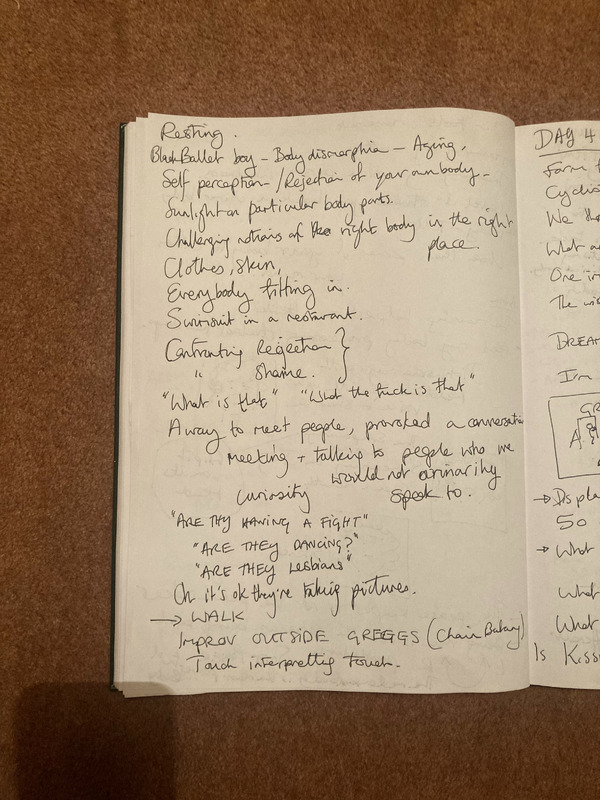 Resting.
Black Ballet boy – Body dismorphia – Aging.
Self perception – / Rejection of your own body –
Sunlight on particular body parts.
Challenging notions of the right body in the right
place.
Clothes, skin,
Everybody fitting in.
Swimsuit in a restaurant.
Confronting Rejection }
" Shame.
"What is that" "What the fuck is that"
A way to meet people, provoked a conversation
meeting + talking to people who we
would not ordinarily
Curiosity speak to.
"ARE THY HAVING A FIGHT"
"ARE THEY DANCING?"
"ARE THEY LESBIANS"
Oh it's ok they're taking pictures.
→ WALK
IMPROV OUTSIDE GREGGS (Chain Bakery)
Touch interpretting touch.
DAY 4
Form
Cyclic
We th
What a
One i
The wi
DREAM
I'm
GR
A
→ Displa
SO
→ What
What
What
Is Kiss